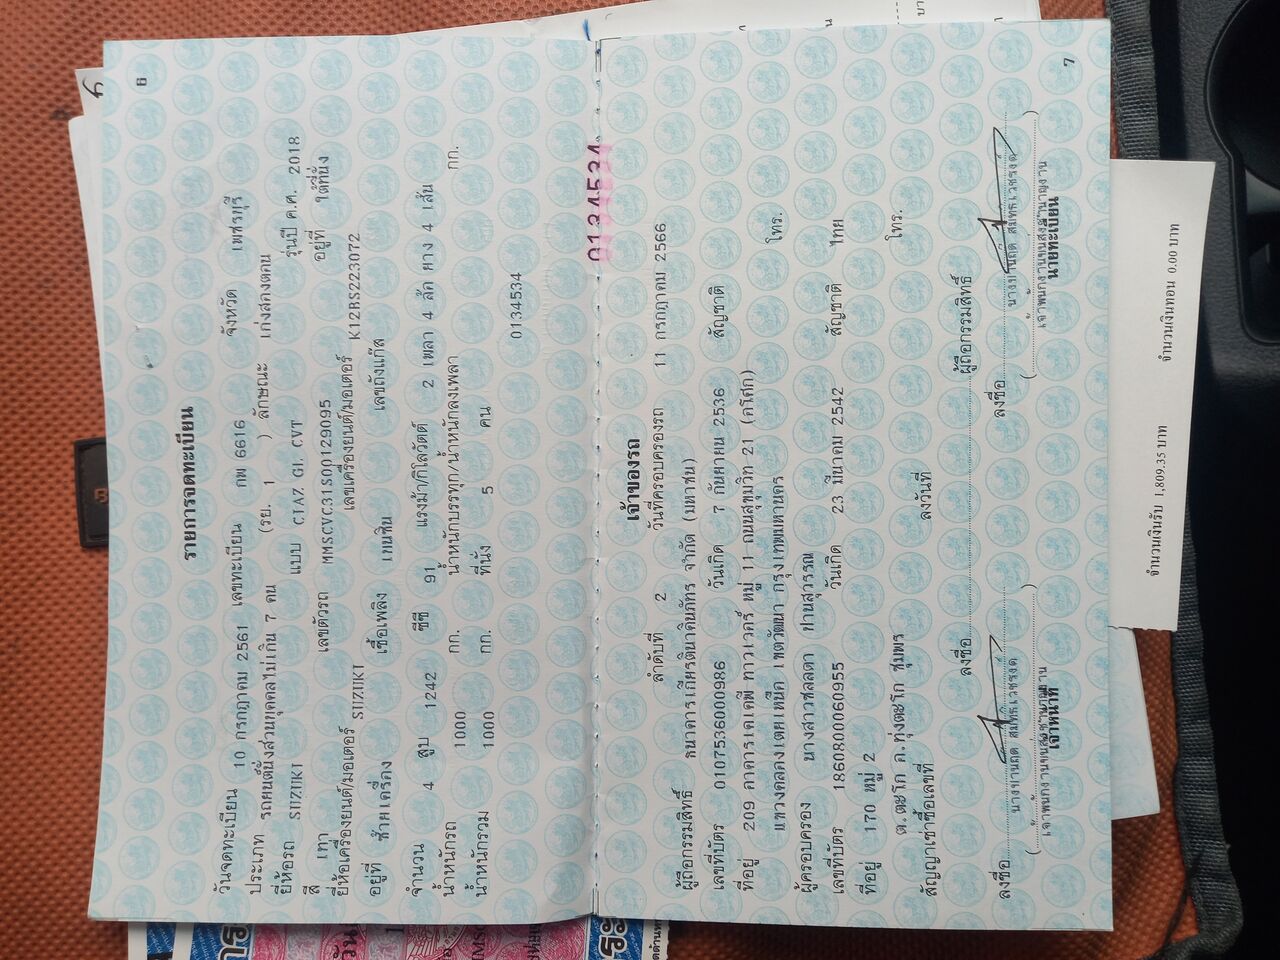 6
รายการจดทะเบียน
วันจดทะเบียน 10 กรกฎาคม 2561 เลขทะเบียน กพ 6616 จังหวัด เพชรบุรี
ประเภท รถยนต์นั่งส่วนบุคคลไม่เกิน 7 คน (รย. 1 ) ลักษณะ เก๋งสองตอน
ยี่ห้อรถ SUZUKI แบบ CIAZ GL CVT รุ่นปี ค.ศ. 2018
สี เทา เลขตัวรถ MMSCVC31S00129095 อยู่ที่ ใต้ที่นั่ง
ยี่ห้อเครื่องยนต์/มอเตอร์ SUZUKI เลขเครื่องยนต์/มอเตอร์ K12BS223072
อยู่ที่ ซ้ายเครื่อง เชื้อเพลิง เบนซิน เลขถังแก๊ส
จำนวน 4 สูบ 1242 ซีซี 91 แรงม้า/กิโลวัตต์ 2 เพลา 4 ล้อ ยาง 4 เส้น
น้ำหนักรถ 1000 กก. น้ำหนักบรรทุก/น้ำหนักลงเพลา กก.
น้ำหนักรวม 1000 กก. ที่นั่ง 5 คน
0134534
0134534
เจ้าของรถ
ลำดับที่ 2 วันที่ครอบครองรถ 11 กรกฎาคม 2566
ผู้ถือกรรมสิทธิ์ ธนาคารเกียรตินาคินภัทร จำกัด (มหาชน)
เลขที่บัตร 0107536000986 วันเกิด 7 กันยายน 2536 สัญชาติ
ที่อยู่ 209 อาคารเคเคพี ทาวเวอร์ หมู่ 11 ถนนสุขุมวิท 21 (อโศก)
แขวงคลองเตยเหนือ เขตวัฒนา กรุงเทพมหานคร โทร.
ผู้ครอบครอง นางสาวชลลดา ปานสุวรรณ
เลขที่บัตร 1860800060955 วันเกิด 23 มีนาคม 2542 สัญชาติ ไทย
ที่อยู่ 170 หมู่ 2
ต.ตะโก อ.ทุ่งตะโก ชุมพร โทร.
สัญญาเช่าซื้อเลขที่ ลงวันที่
ลงชื่อ ผู้ถือกรรมสิทธิ์
ลงชื่อ ลงชื่อ
เจ้าพนักงานขนส่งชำนาญงาน เจ้าพนักงานขนส่งชำนาญงาน
เจ้าหน้าที่ นายทะเบียน
7
จำนวนเงินรับ 1,809.35 บาท จำนวนเงินทอน 0.00 บาท